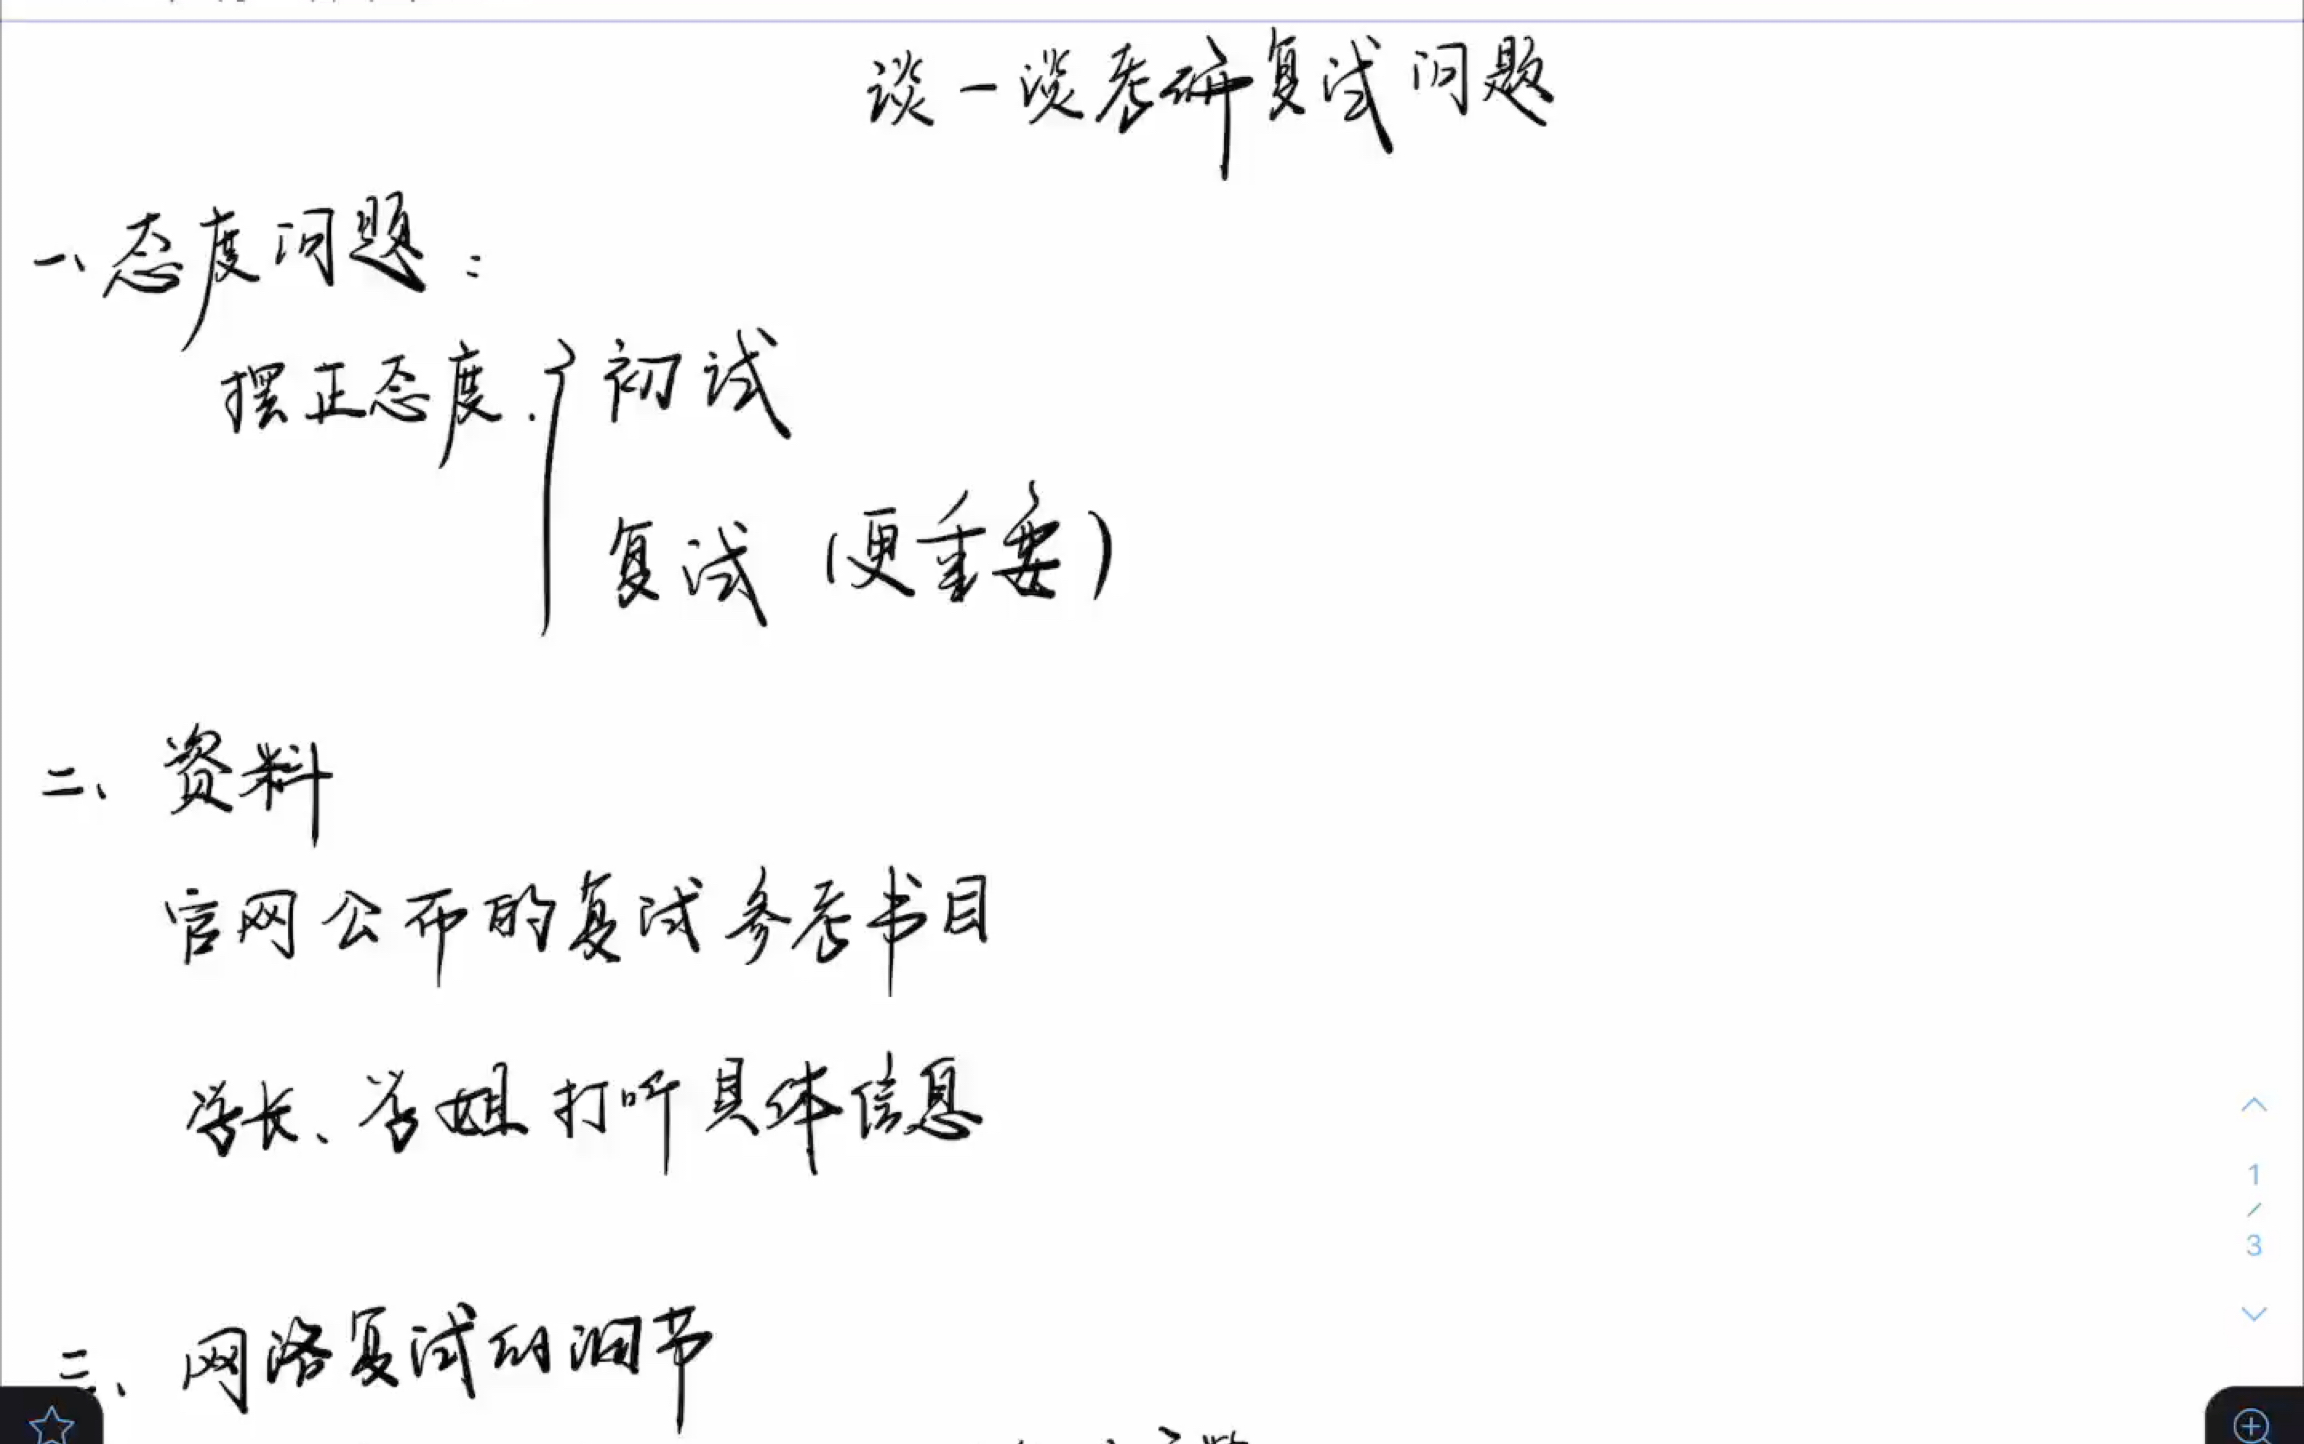 谈一谈考研复试问题
一、态度问题：
摆正态度.{初试
复试（更重要）
二、资料
官网公布的复试参考书目
学长、学姐打听具体信息
三、网络复试的细节
1
/
3